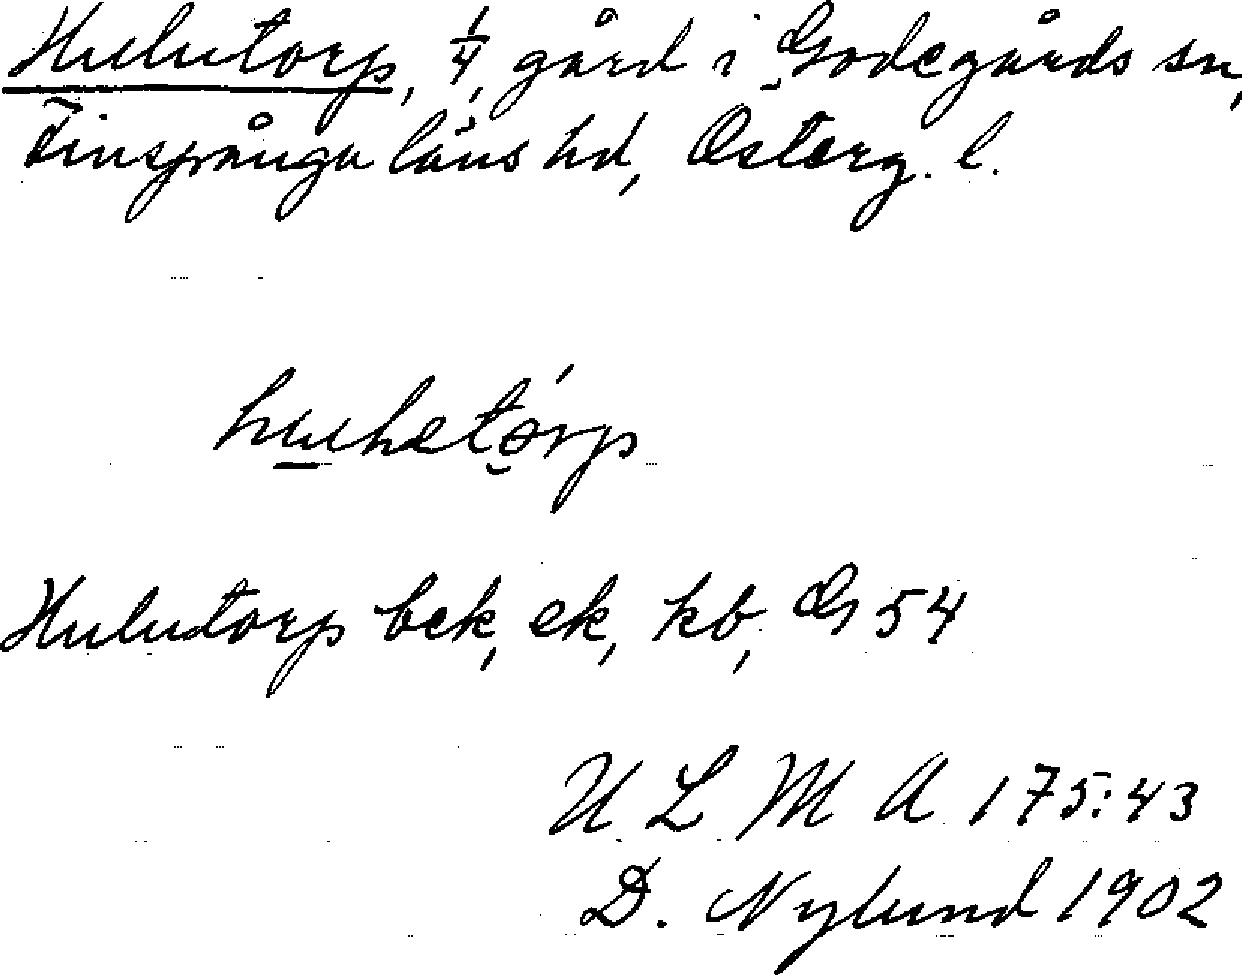 Hulutorp, 1/4, gård i Godegårds sn,
Finspånga läns hd, Österg. l.
Hulutorp bek, ek, kb, G 54
U L M A 175:43
D. Nylund 1902